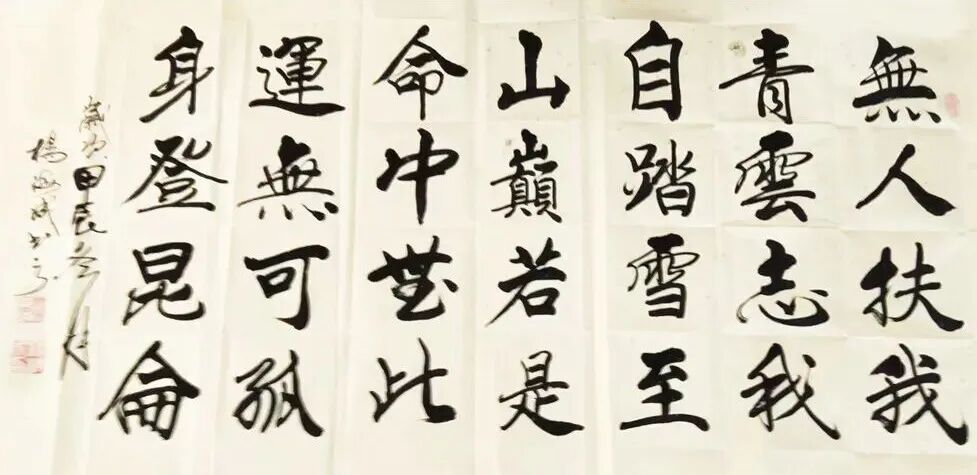 無人扶我
青雲志我
自踏雪至
山巔若是
命中無此
運無可孤
身登昆侖
歲次甲辰冬
楊海